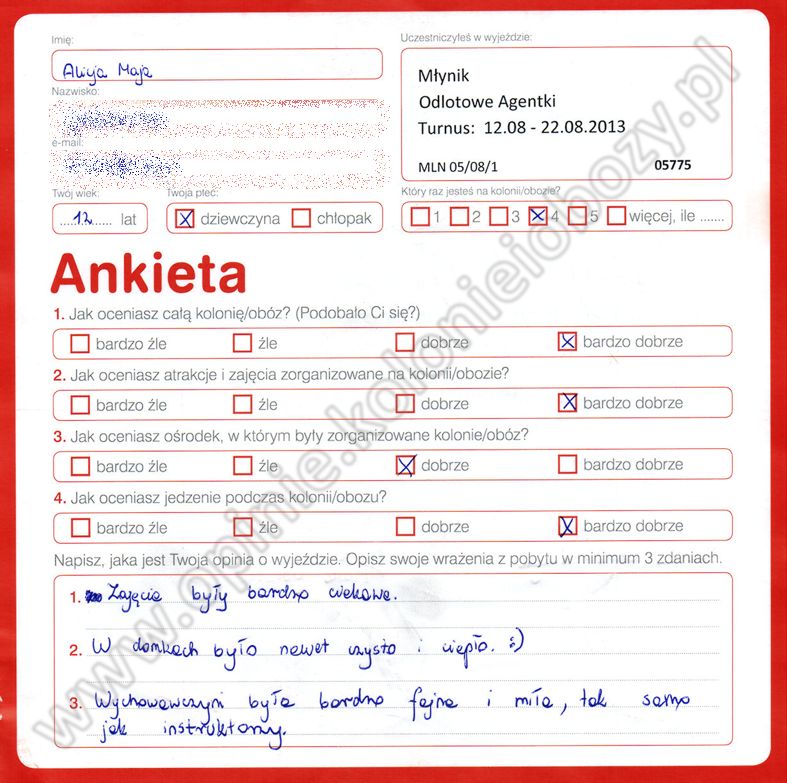 Imię:
Alicja Maja
Nazwisko:
e-mail:
Twój wiek:
12 lat
Twoja płeć:
dziewczyna chłopak
Uczestniczyłeś w wyjeździe:
Młynik
Odlotowe Agentki
Turnus: 12.08 - 22.08.2013
MLN 05/08/1 05775
Który raz jesteś na kolonii/obozie?
1 2 3 4 5 więcej, ile .......
Ankieta
1. Jak oceniasz całą kolonię/obóz? (Podobało Ci się?)
bardzo źle źle dobrze bardzo dobrze
2. Jak oceniasz atrakcje i zajęcia zorganizowane na kolonii/obozie?
bardzo źle źle dobrze bardzo dobrze
3. Jak oceniasz ośrodek, w którym były zorganizowane kolonie/obóz?
bardzo źle źle dobrze bardzo dobrze
4. Jak oceniasz jedzenie podczas kolonii/obozu?
bardzo źle źle dobrze bardzo dobrze
Napisz, jaka jest Twoja opinia o wyjeździe. Opisz swoje wrażenia z pobytu w minimum 3 zdaniach.
1. Zajęcia były bardzo ciekawe.
2. W domkach było nawet czysto i ciepło. :)
3. Wychowawczyni była bardzo fajna i miła, tak samo
jak instruktorzy.
www.opinie.kolonieiobozy.pl